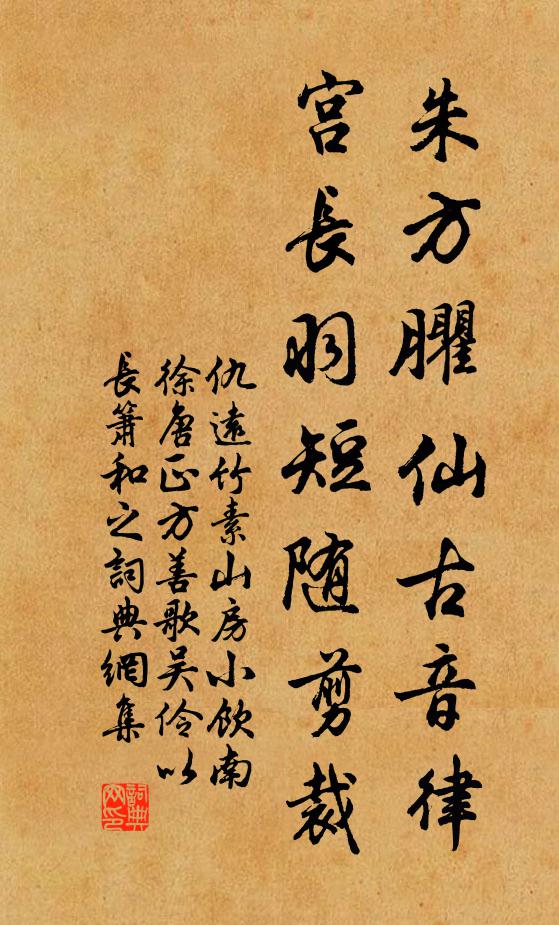 朱方臞仙古音律
宫長羽短随剪裁
仇遠竹素山房小飲南
徐唐正方善歌吴伶以
長簫和之詞典網集
詞典網印